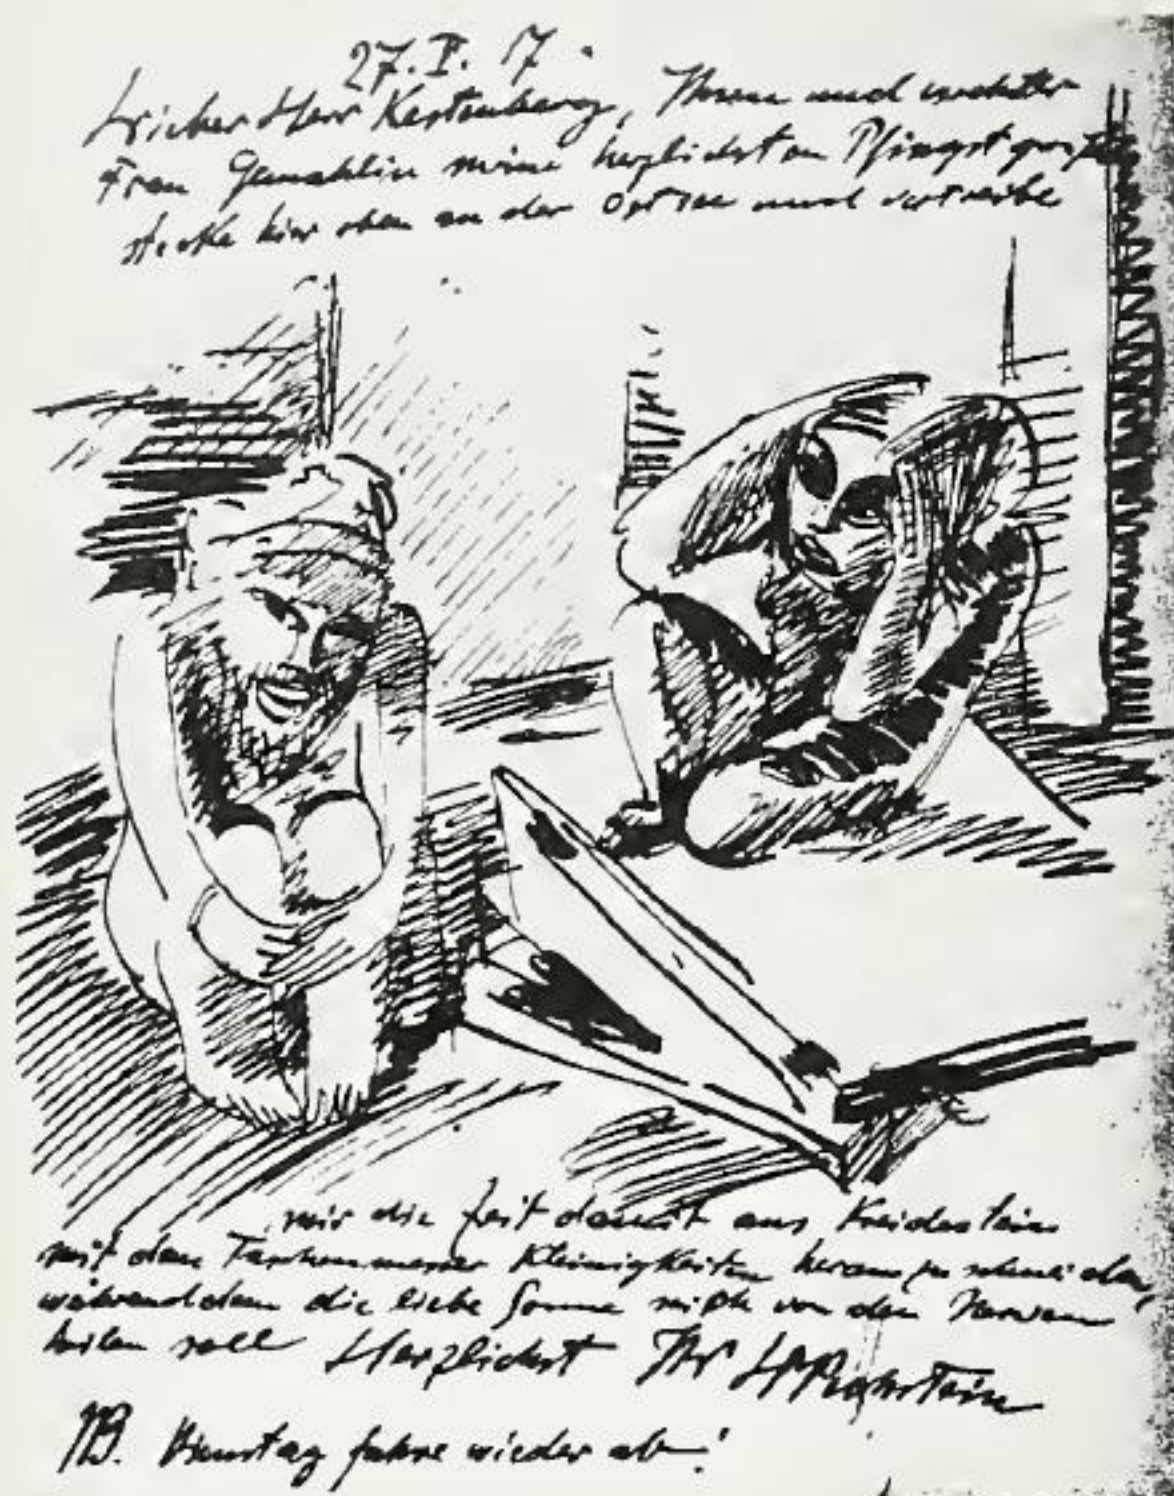 27. V. 17.
Lieber Herr Kestenberg, Ihnen und verehrter
Frau Gemahlin meine herzlichsten Pfingstgrüße
stecke hier oben an der Ostsee und vertreibe
mir die Zeit damit aus Kreidestein
mit dem Taschenmesser Kleinigkeiten herauszuschneiden,
währenddem die liebe Sonne mich von den Nerven
heilen soll Herzlichst Ihr
NB. Dienstag fahre wieder ab!